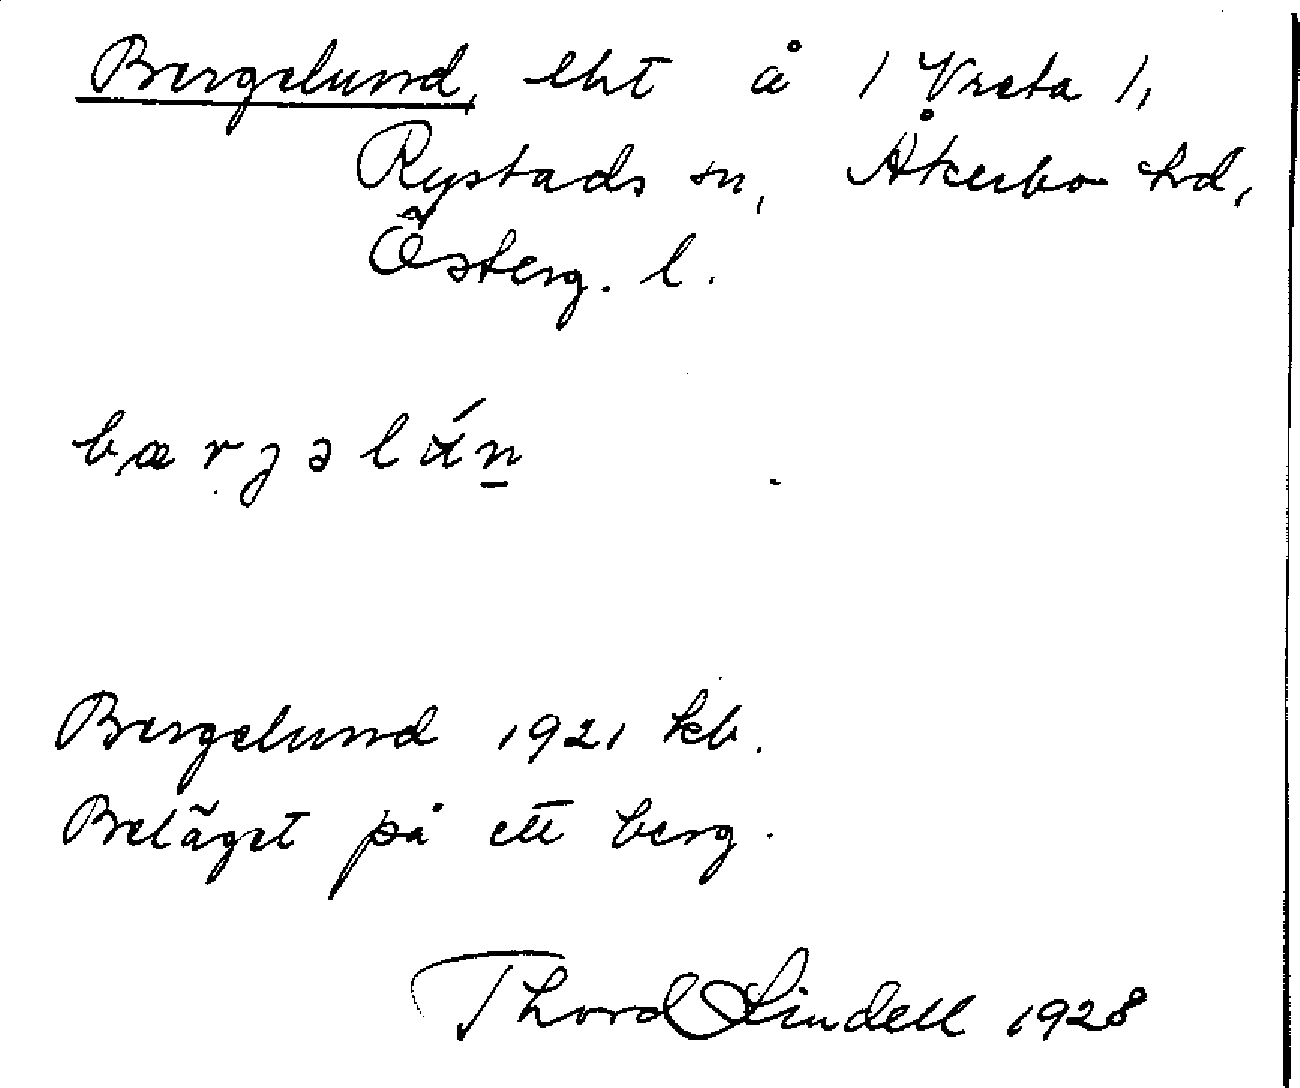 Bergelund, lht å / Vreta /,
Rystads sn, Åkerbo hd,
Österg. l.
bærjəlán
Bergelund 1921 kb.
Beläget på ett berg.
Thord Lindell 1928